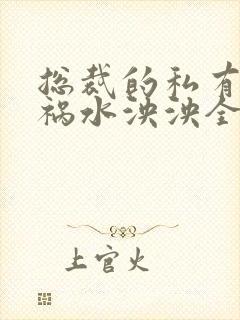 总裁的私有
祸水泱泱全
上官火